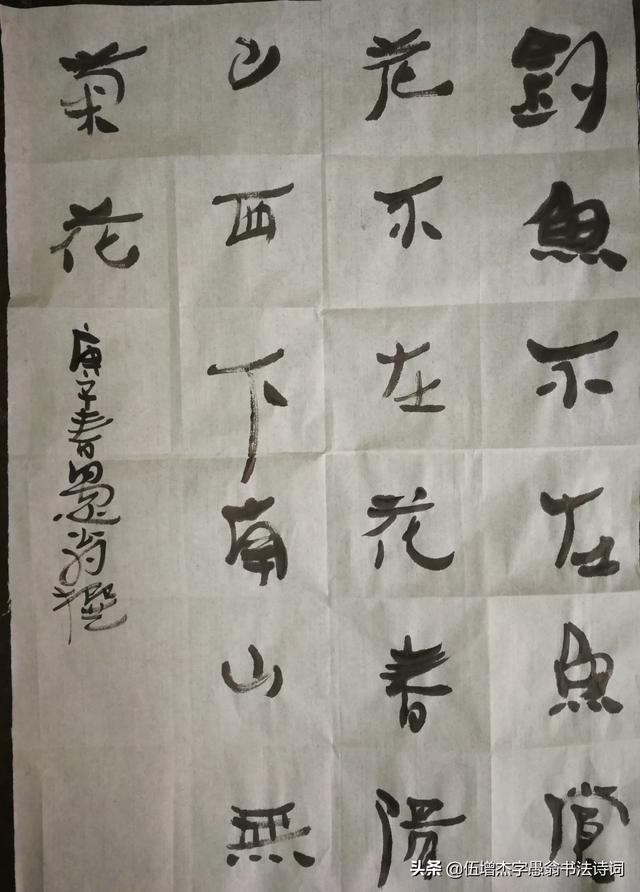 釣魚不在魚賞
花不在花春陽
山西下南山無
菊花
庚子春愚翁
头条 @伍增杰字愚翁书法诗词